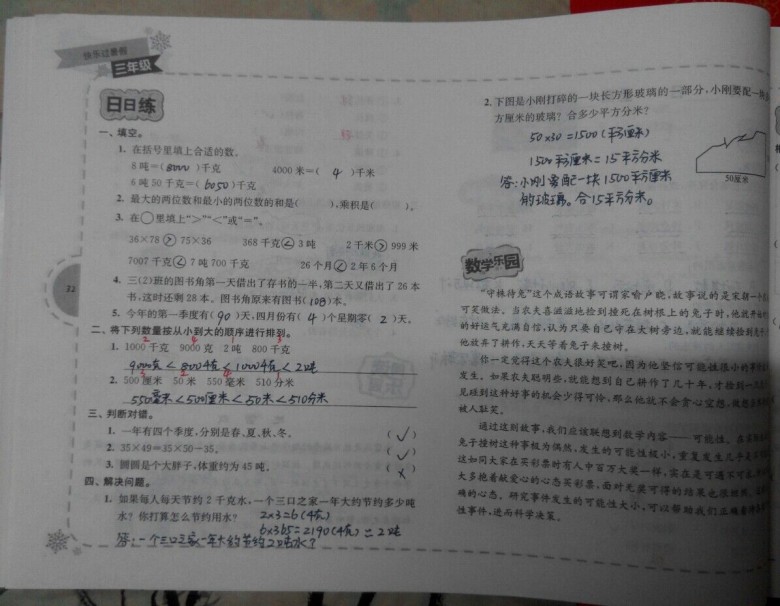 快乐过暑假
三年级
日日练
一、填空。
1. 在括号里填上合适的数。
8 吨=( 8000 )千克 4000 米=( 4 )千米
6 吨 50 千克=( 6050 )千克
2. 最大的两位数和最小的两位数的和是( ),乘积是( )。
3. 在○里填上“>”“<”或“=”。
36×78 > 75×36 368 千克 < 3 吨 2 千米 > 999 米
7007 千克 < 7 吨 700 千克 26 个月 < 2 年 6 个月
4. 三(2)班的图书角第一天借出了存书的一半,第二天又借出了 26 本
书,这时还剩 28 本。图书角原来有图书( 108 )本。
5. 今年的第一季度有( 90 )天,四月份有( 4 )个星期零( 2 )天。
二、将下列数量按从小到大的顺序进行排列。
1. 1000 千克 9000 克 2 吨 800 千克
9000克<800千克<1000千克<2吨
2. 500 厘米 50 米 550 毫米 510 分米
550毫米<500厘米<50米<510分米
三、判断对错。
1. 一年有四个季度,分别是春、夏、秋、冬。 ( √ )
2. 35×49=35×50-35。 ( √ )
3. 圆圆是个大胖子,体重约为 45 吨。 ( × )
四、解决问题。
1. 如果每人每天节约 2 千克水,一个三口之家一年大约节约多少吨
水? 你打算怎么节约用水? 2×3=6(千克)
6×365=2190(千克)≈2吨
答:一个三口之家一年大约节约2吨水?
32
2. 下图是小刚打碎的一块长方形玻璃的一部分,小刚要配一块
方厘米的玻璃? 合多少平方分米?
50×30=1500(平方厘米)
1500平方厘米=15平方分米
答:小刚要配一块1500平方厘米
的玻璃。合15平方分米。
50厘米
数学乐园
“守株待兔”这个成语故事可谓家喻户晓,故事说的是宋朝一个
可笑做法。当农夫喜滋滋地捡到撞死在树根上的兔子时,他就开始
的好运气充满自信,认为只要自己守在大树旁边,就能继续捡到兔子
他放弃了耕作,天天等着兔子来撞树。
你一定觉得这个农夫很好笑吧,因为他坚信可能性很小的事
发生。如果农夫聪明些,就能想到自己耕作了几十年,才捡到一只
见碰到这种好事的机会少得可怜,那么他就不会贪心妄想,
被人耻笑。
通过这则故事,我们应该联想到数学内容——可能性。
兔子撞树这种事极为偶然,发生的可能性极小,重复发生几乎是
这如同大家在买彩票时有人中百万大奖一样,实在是可遇不可求
大多抱着献爱心的心态买彩票,面对无奖可得的结果也很坦然,
确的心态。研究事件发生的可能性大小,可以帮助我们正确看待
性事件,进而科学决策。